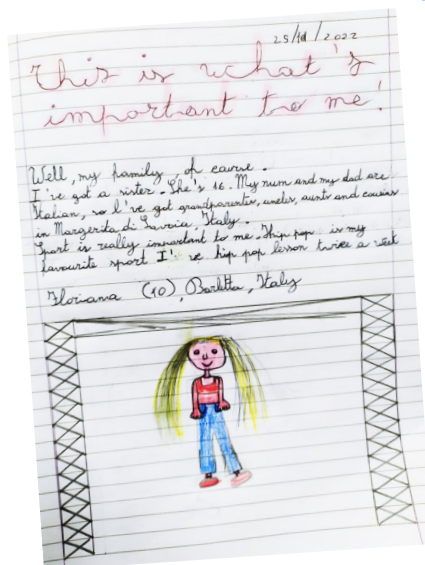 25/10/2022
This is what's
important to me!
Well, my family, of caurse.
I've got a sister. She's 16. My num and my dad are
Italian, so I've got grandparents, uncles, aunts and cousins
in Margerita di Savoia, Italy.
Sport is really important to me. Hip pop is my
favourite sport I've hip pop lesson twice a week
Floriana (10), Barletta, Italy